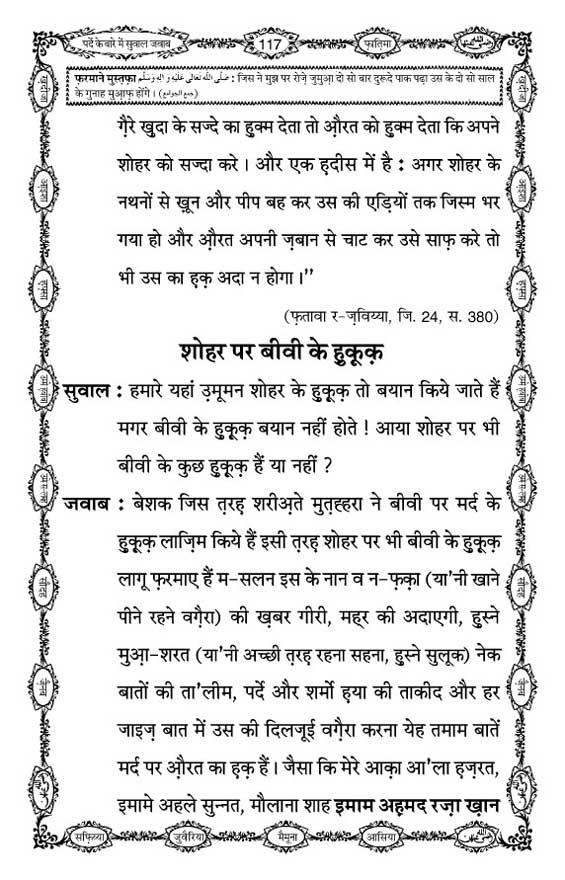 पर्दे के बारे में सुवाल जवाब
117
फ़ातिमा
फ़रमाने मुस्तफ़ा صَلَّى اللهُ تَعَالٰى عَلَيْهِ وَاٰلِهٖ وَسَلَّم : जिस ने मुझ पर रोज़े जुमुआ़ दो सो बार दुरूदे पाक पढ़ा उस के दो सो साल
के गुनाह मुआ़फ़ होंगे । (جمع الجوامع)
गै़रे ख़ुदा के सज्दे का हुक्म देता तो औ़रत को हुक्म देता कि अपने
शोहर को सज्दा करे । और एक ह़दीस में है : अगर शोहर के
नथनों से ख़ून और पीप बह कर उस की एड़ियों तक जिस्म भर
गया हो और औ़रत अपनी ज़बान से चाट कर उसे साफ़ करे तो
भी उस का ह़क़ अदा न होगा ।”
(फ़तावा र-ज़विय्या, जि. 24, स. 380)
शोहर पर बीवी के हु़कूक़
सुवाल : हमारे यहां उ़मूमन शोहर के हु़कूक़ तो बयान किये जाते हैं
मगर बीवी के हु़कूक़ बयान नहीं होते ! आया शोहर पर भी
बीवी के कुछ हु़कूक़ हैं या नहीं ?
जवाब : बेशक जिस त़रह़ शरीअ़ते मुत़ह्हरा ने बीवी पर मर्द के
हु़कूक़ लाज़िम किये हैं इसी त़रह़ शोहर पर भी बीवी के हु़कूक़
लागू फ़रमाए हैं म-सलन इस के नान व न-फ़क़ा (या'नी खाने
पीने रहने वगै़रा) की ख़बर गीरी, महर की अदाएगी, हु़स्ने
मुआ़-शरत (या'नी अच्छी त़रह़ रहना सहना, हु़स्ने सुलूक) नेक
बातों की ता'लीम, पर्दे और शर्मो ह़या की ताकीद और हर
जाइज़ बात में उस की दिलजूई वगै़रा करना येह तमाम बातें
मर्द पर औ़रत का ह़क़ हैं । जैसा कि मेरे आक़ा आ'ला ह़ज़रत,
इमामे अहले सुन्नत, मौलाना शाह इमाम अह़मद रज़ा ख़ान
सफ़िय्या
जुवैरिया
मैमूना
आसिया